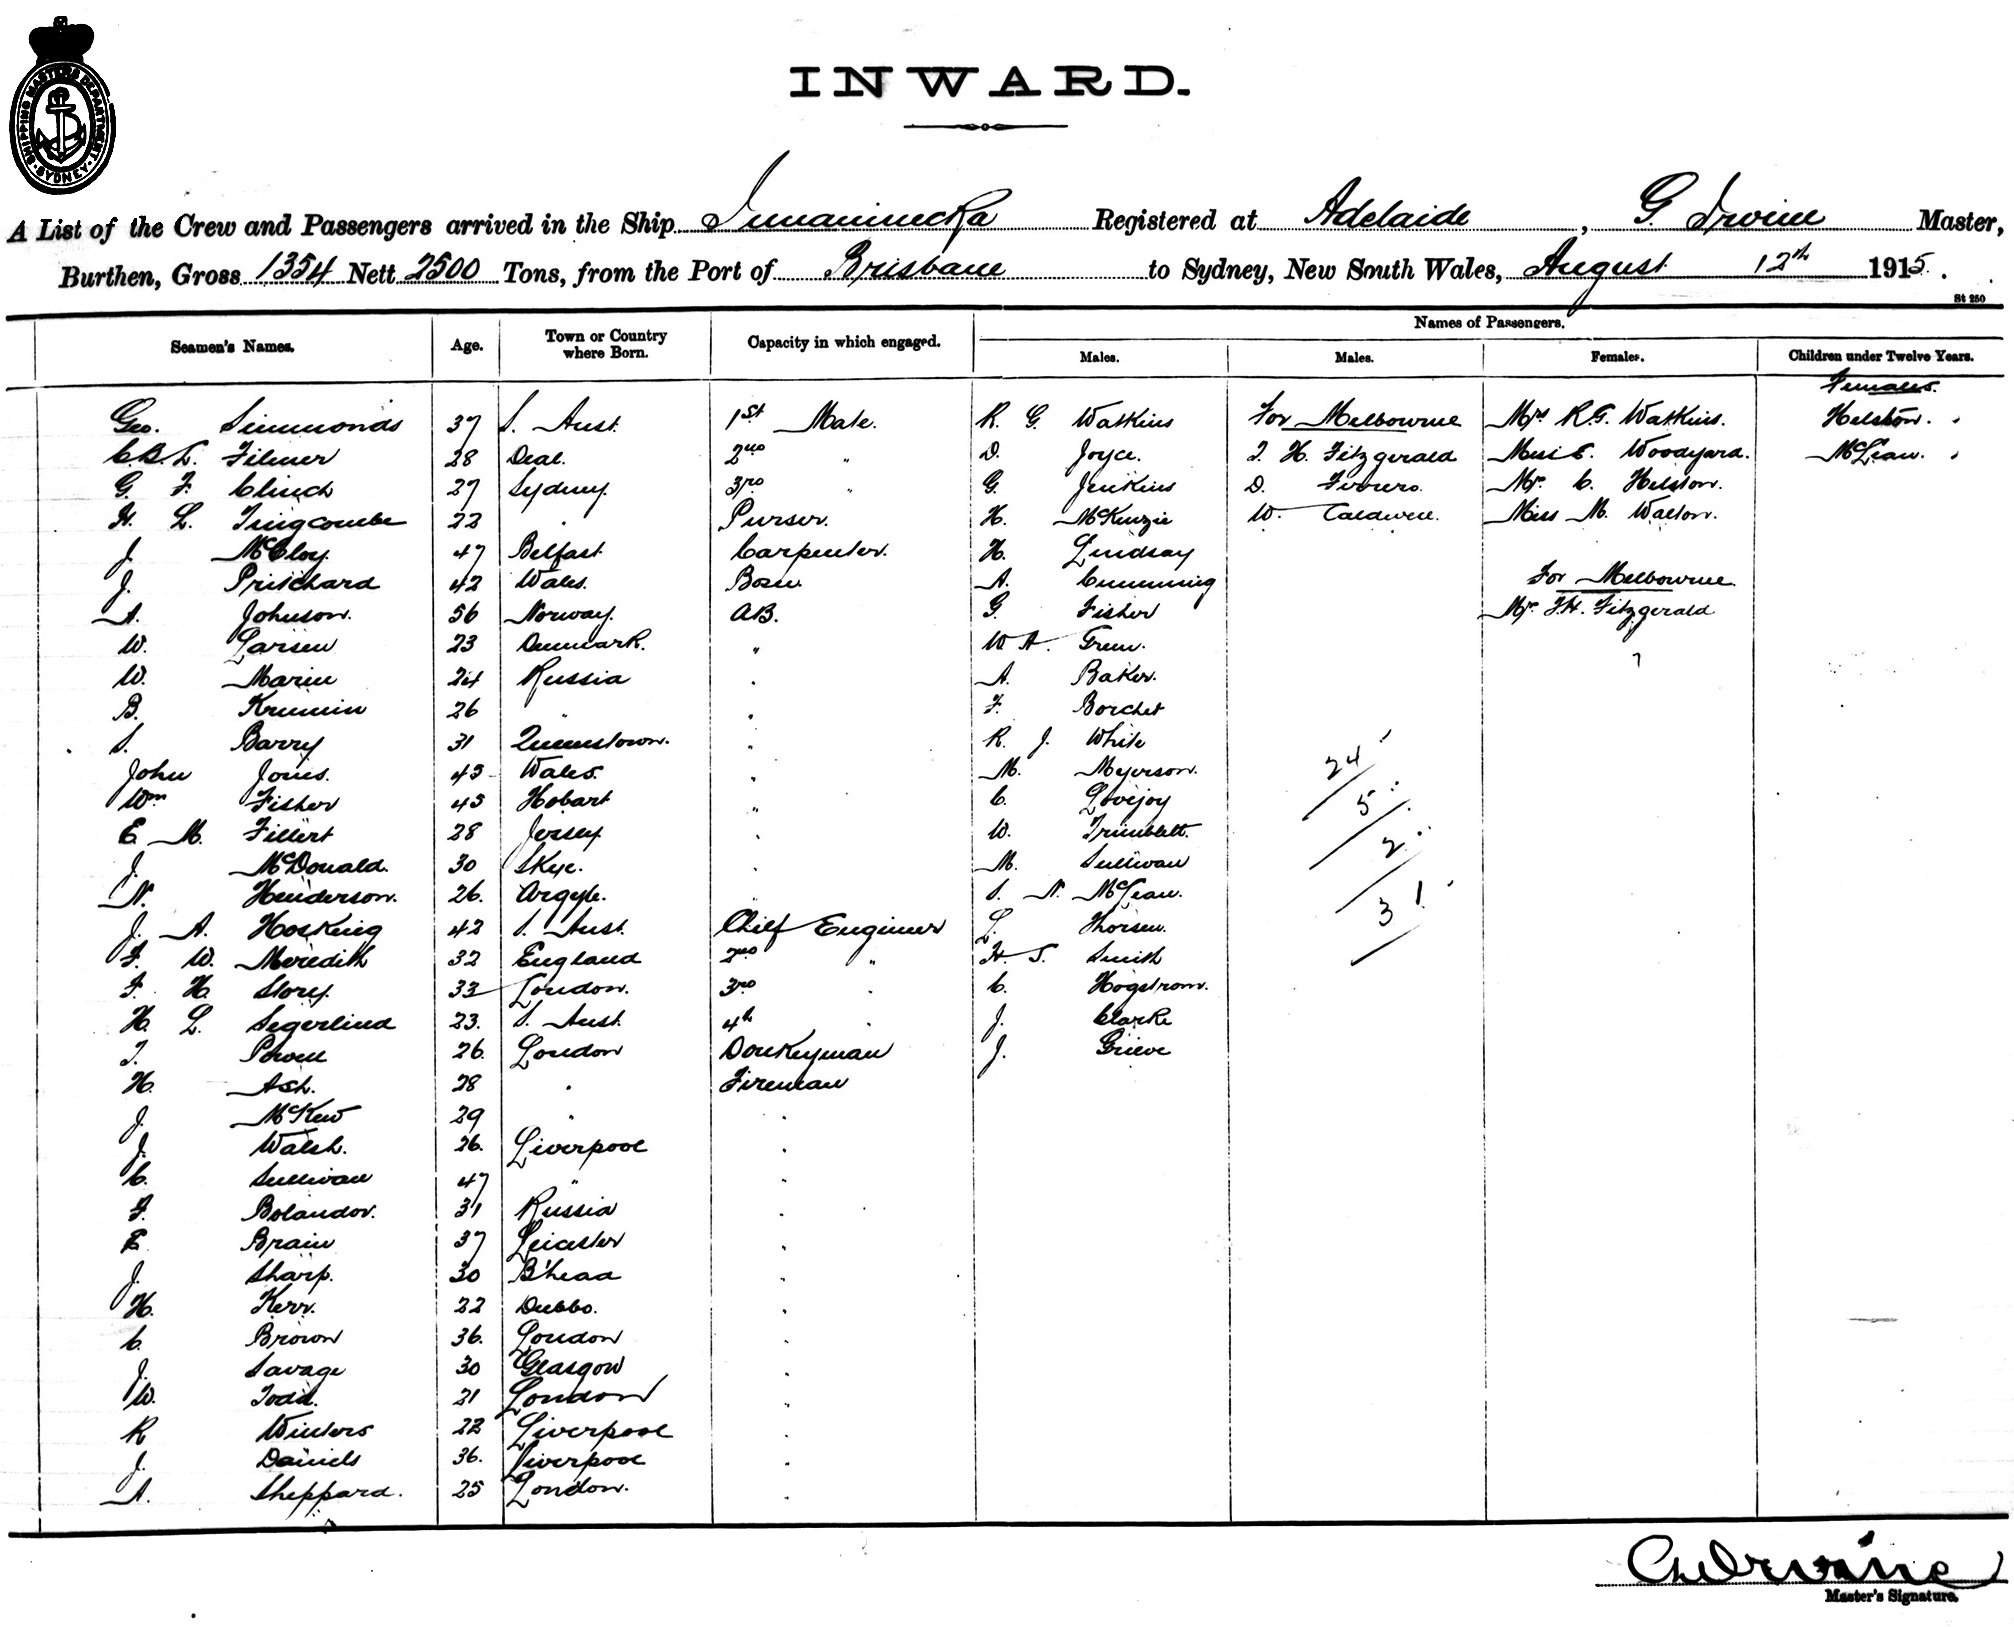 SHIPPING MASTERS DEPARTMENT
SYDNEY
INWARD.
A List of the Crew and Passengers arrived in the Ship Innamincka Registered at Adelaide, G. Irvine Master,
Burthen, Gross 1354 Nett 2500 Tons, from the Port of Brisbane to Sydney, New South Wales, August 12th 1915.
St 250
Names of Passengers.
Seamen's Names. Age. Town or Country where Born. Capacity in which engaged. Males. Males. Females. Children under Twelve Years.
Females.
Geo. Simmonds 37 S. Aust. 1st Mate. R. G. Watkins For Melbourne Mrs R.G. Watkins. Helston.
C.B.L. Filmer 28 Deal. 2nd " D. Joyce. T. H. Fitzgerald Miss E. Woodyard. McLean.
G. F. Clinch 27 Sydney. 3rd " G. Jenkins D. Mrs. C. Helston.
H. L. Tingcombe 22 " Purser. H. McKenzie W. Caldwell. Miss M. Walton.
J. McCloy. 47 Belfast Carpenter. H. Lindsay
J. Pritchard 42 Wales. Bosn. A. Cumming For Melbourne.
A. Johnson. 56 Norway. AB. G. Fisher Mrs. T.H. Fitzgerald
W. Larsen 23 Denmark. " W A. Green.
W. Marin 24 Russia " A. Baker.
B. Krummin 26 " " F. Borchet
S. Barry 31 Queenstown. " R. J. White
John Jones. 43 Wales. " M. Meyerson. 24
Wm Fisher 43 Hobart " C. Lovejoy 5
E. M. Fillert 28 Jersey " W. Trimblett. 2
J. McDonald. 30 Skye. " M. Sullivan
N. Henderson. 26. Argyle. " S. N. McLean. 31
J. A. Hosking 42 S. Aust. Chief Engineer L. Thorsen.
F. W. Meredith 32 England 2nd " H. S. Smith
F. H. Storey. 33 London. 3rd " C. Hogstrom.
H. L. Segerlind 23. S. Aust. 4th " J. Clarke
T. Powell 26. London Donkeyman J. Grieve
H. Ash. 28 " Fireman
J. McKew 29 " "
J. Walsh. 26. Liverpool "
C. Sullivan 47 " "
F. Bolandor. 31 Russia "
E. Brain 37 Leicester "
J. Sharp. 30 B'head "
H. Kerr. 22 Dubbo. "
C. Brown 36. London "
J. Savage 30 Glasgow "
W. Todd. 21 London "
R Winters 22 Liverpool "
J. Daniels 36. Liverpool "
A. Sheppard. 25 London. "
G Irvine
Master's Signature.